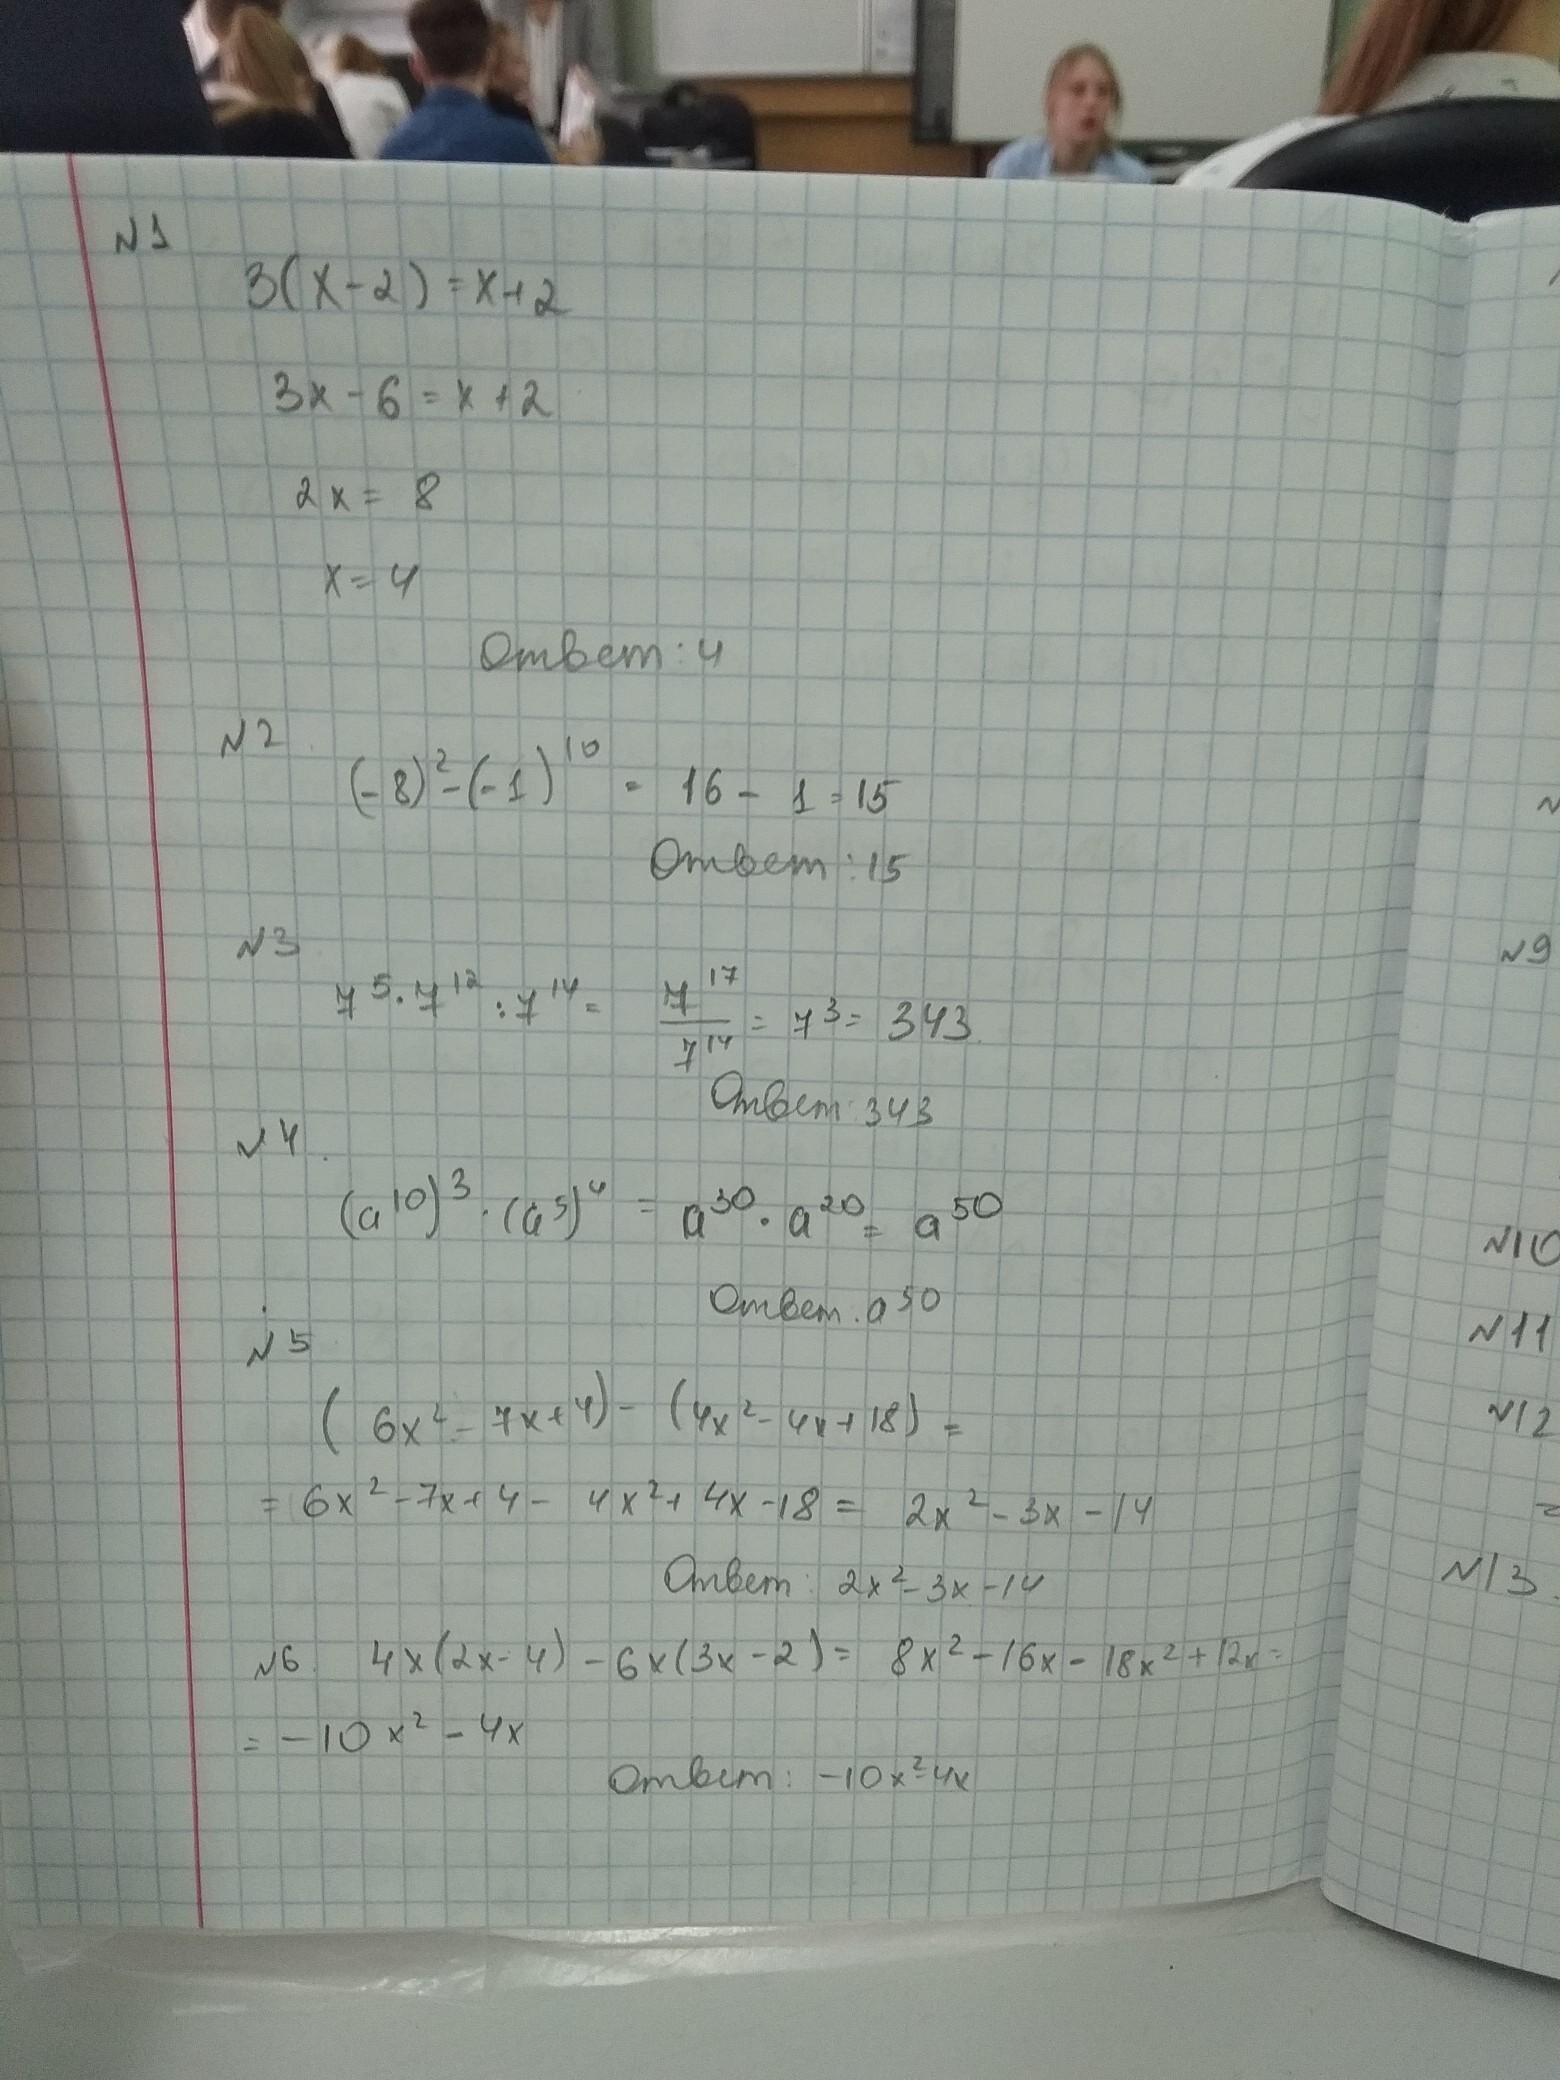 N1
3(x-2)=x+2
3x-6=x+2
2x=8
x=4
Ответ: 4
N2
(-8)²-(-1)¹⁰ = 16-1=15
Ответ: 15
N3
7⁵·7¹²:7¹⁴= 7¹⁷/7¹⁴ = 7³= 343
Ответ: 343
N4.
(a¹⁰)³·(a⁵)⁴ = a³⁰·a²⁰= a⁵⁰
Ответ. a⁵⁰
N5
(6x²-7x+4)-(4x²-4x+18)=
=6x²-7x+4-4x²+4x-18= 2x²-3x-14
Ответ: 2x²-3x-14
N6. 4x(2x-4)-6x(3x-2)= 8x²-16x-18x²+12x=
=-10x²-4x
Ответ: -10x²-4x
N9
N10
N11
N12
=
N13.